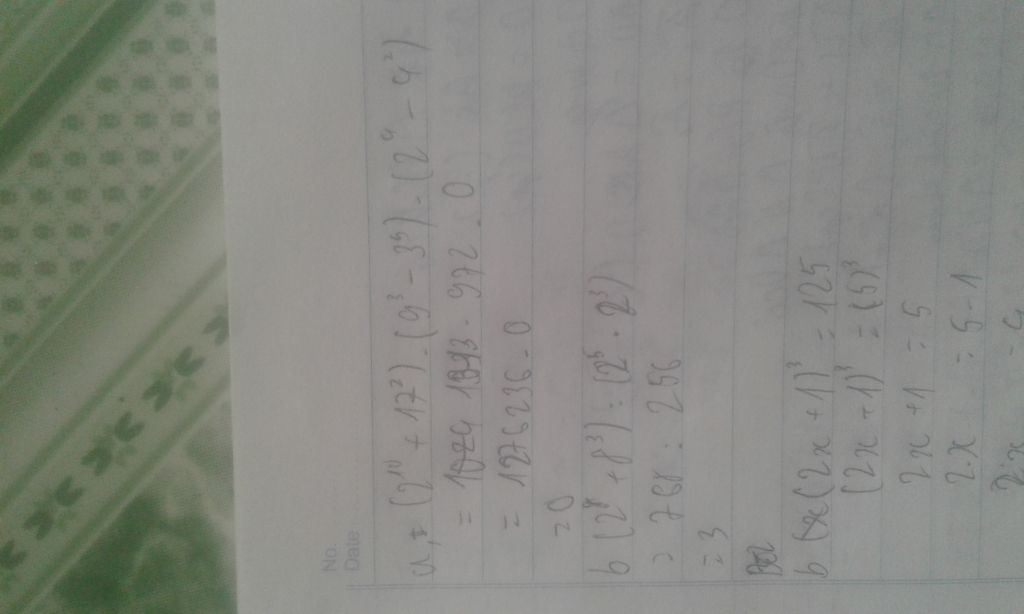 No.
Date
a, (2¹⁰ + 17²) . (9³ - 3⁵) . (2⁴ - 4²)
= 1393 . 972 . 0
= 1276236 . 0
= 0
b (2⁸ + 8³) : (2⁵ . 2³)
= 768 : 256
= 3
b (2x + 1)³ = 125
(2x + 1)³ = (5)³
2x + 1 = 5
2.x = 5 - 1
2.x =